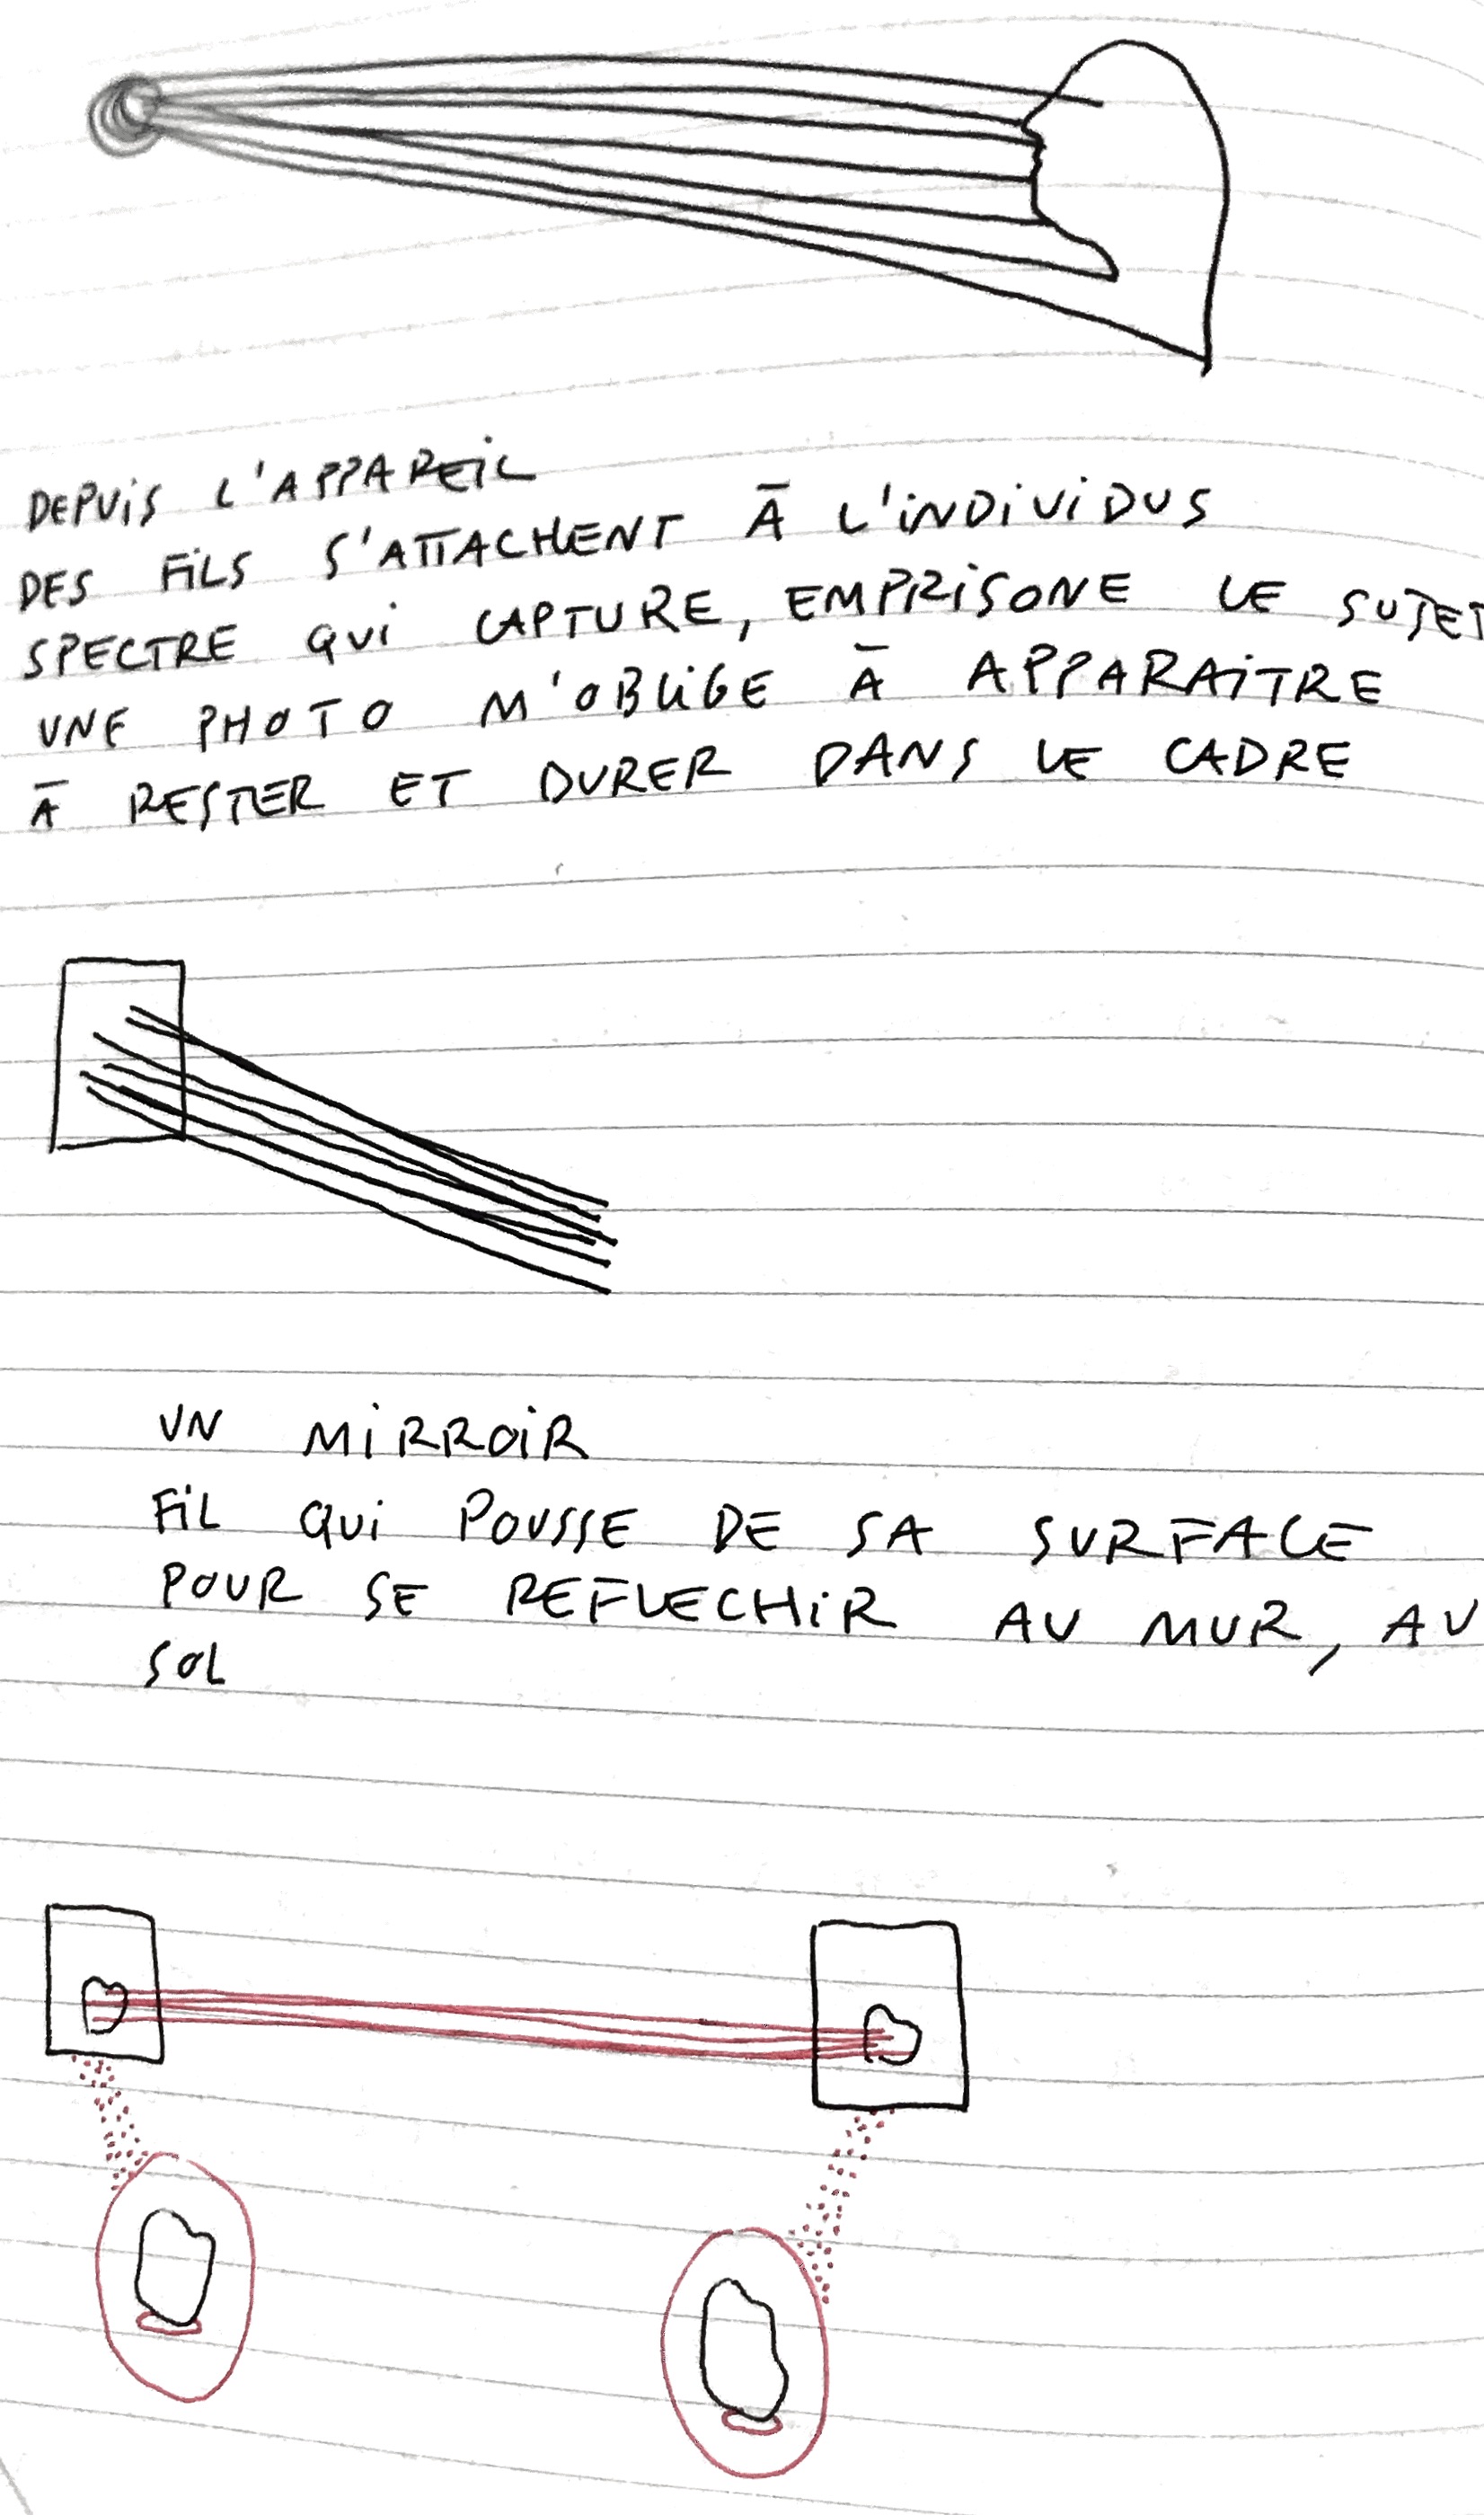 DEPUIS L'APPAREIL
DES FILS S'ATTACHENT À L'INDIVIDUS
SPECTRE QUI CAPTURE, EMPRISONE LE SUJET
UNE PHOTO M'OBLIGE À APPARAITRE
À RESTER ET DURER DANS LE CADRE
UN MIRROIR
FIL QUI POUSSE DE SA SURFACE
POUR SE REFLECHIR AU MUR, AU
SOL